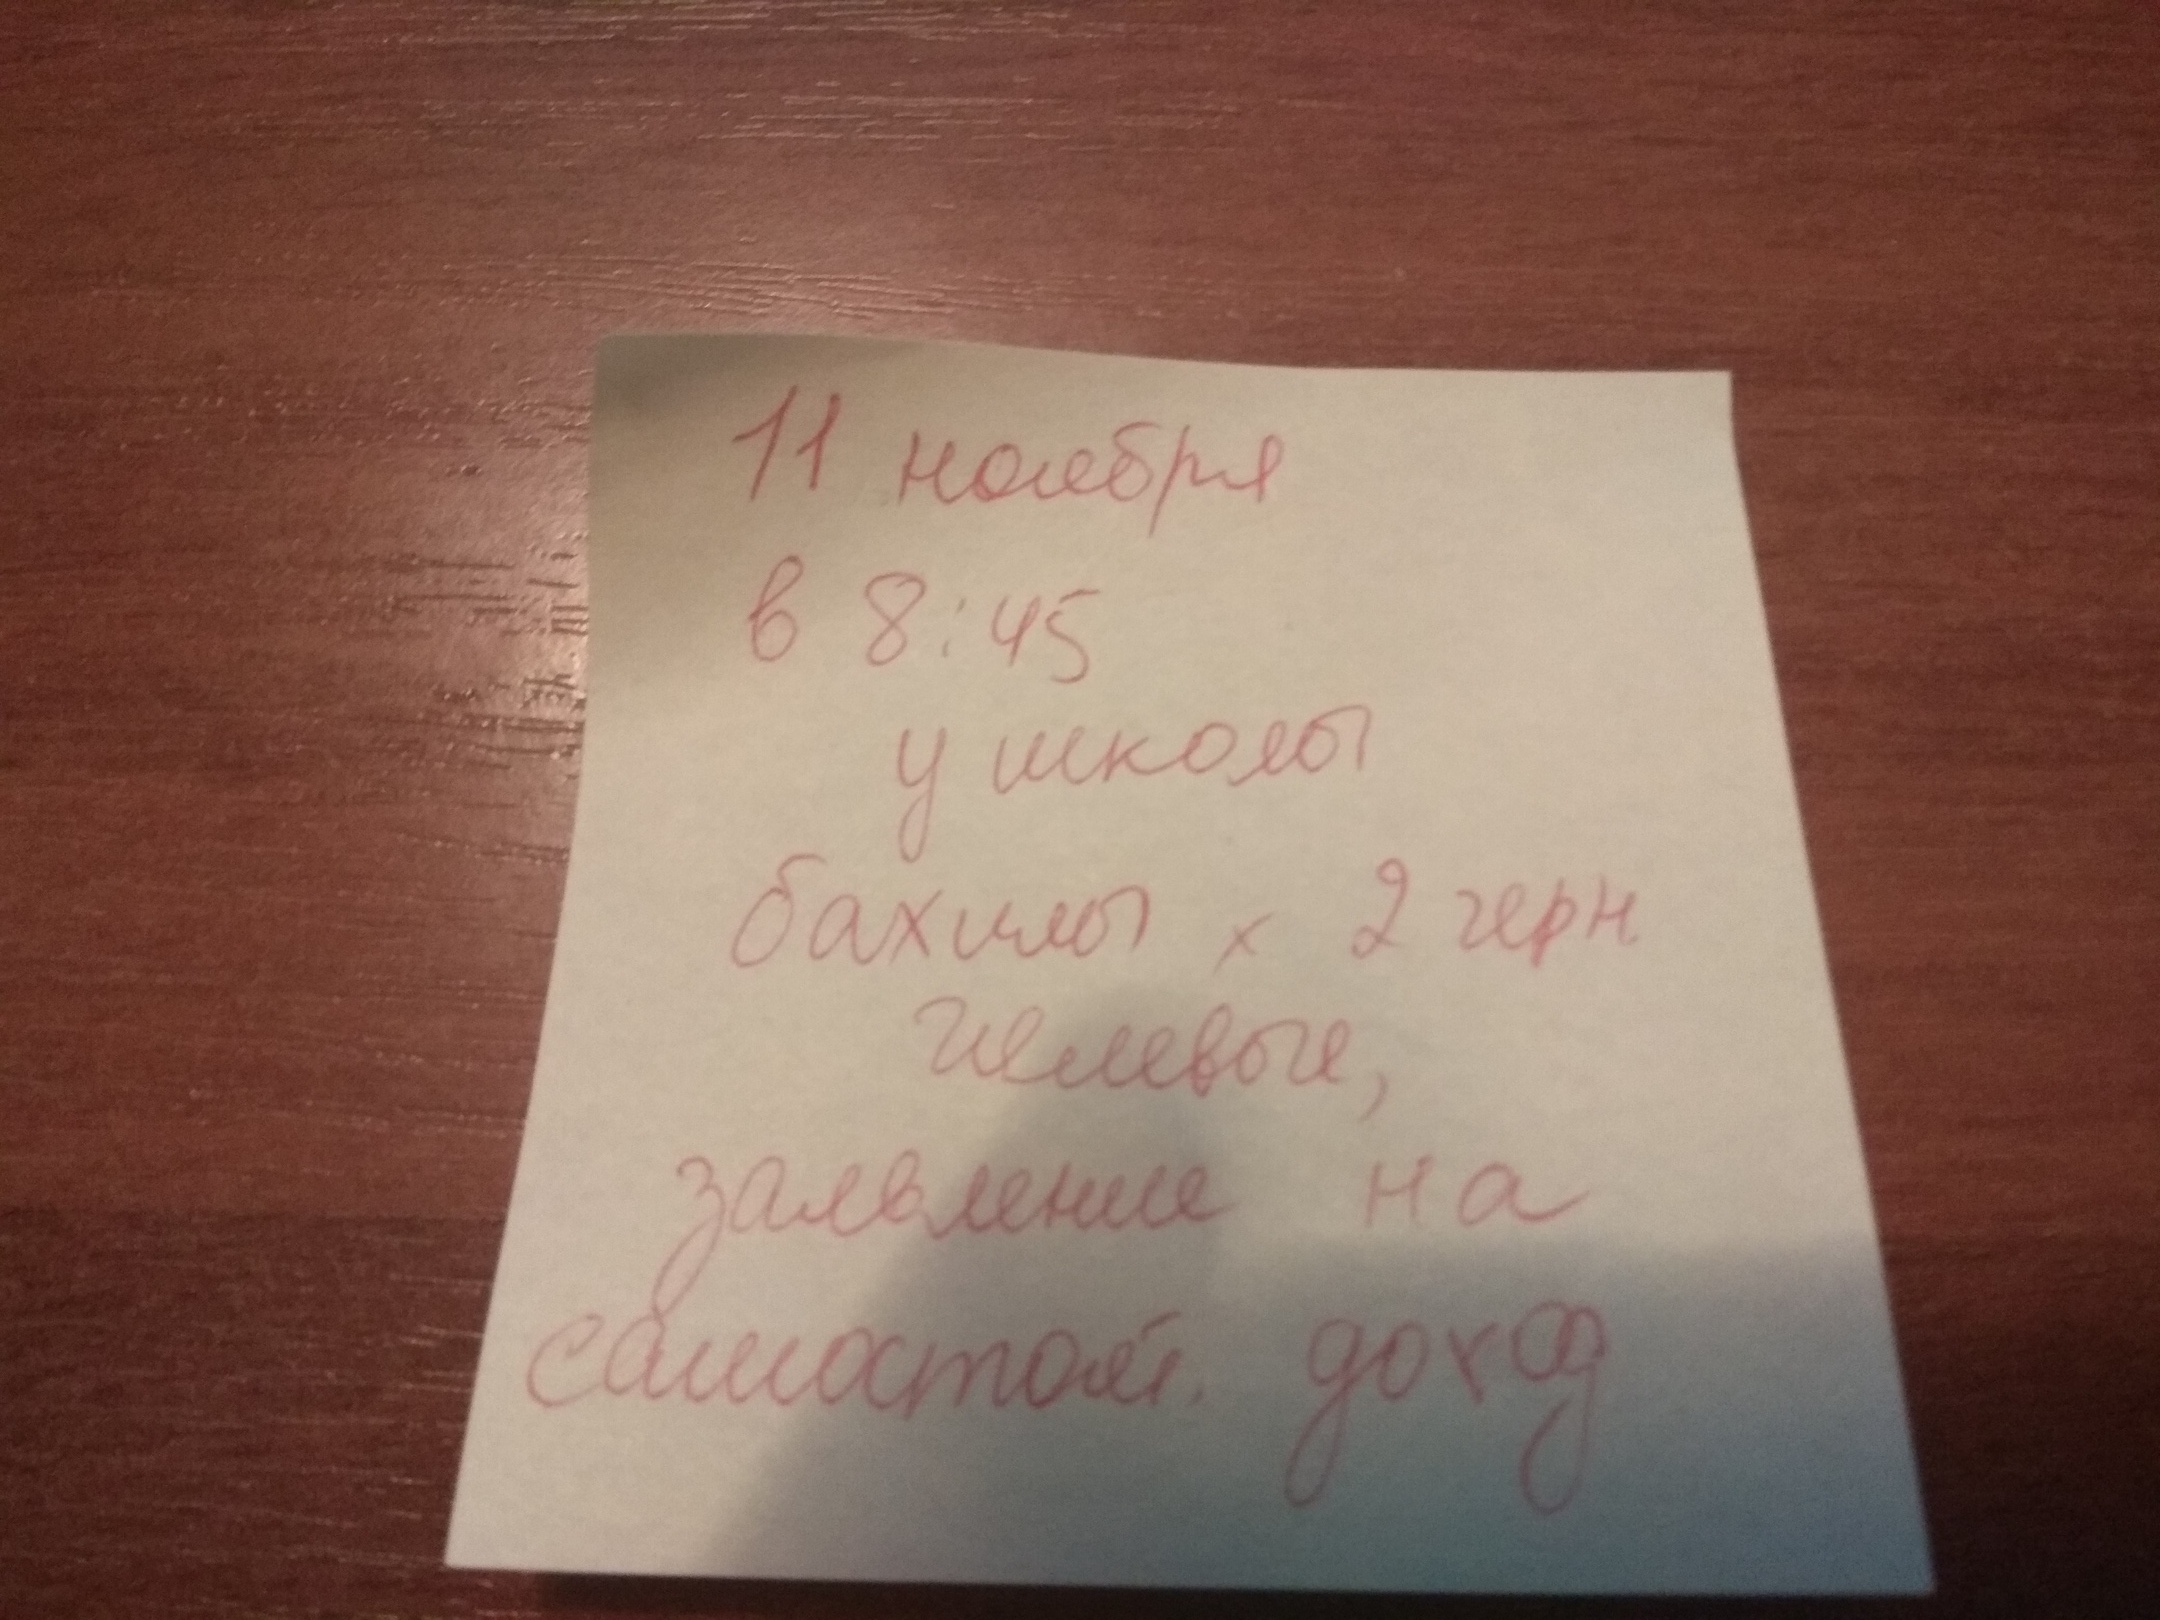 11 ноября
в 8:45
у школы
бахилы x 2 черн
гелевые,
заявление на
самостоят. доход